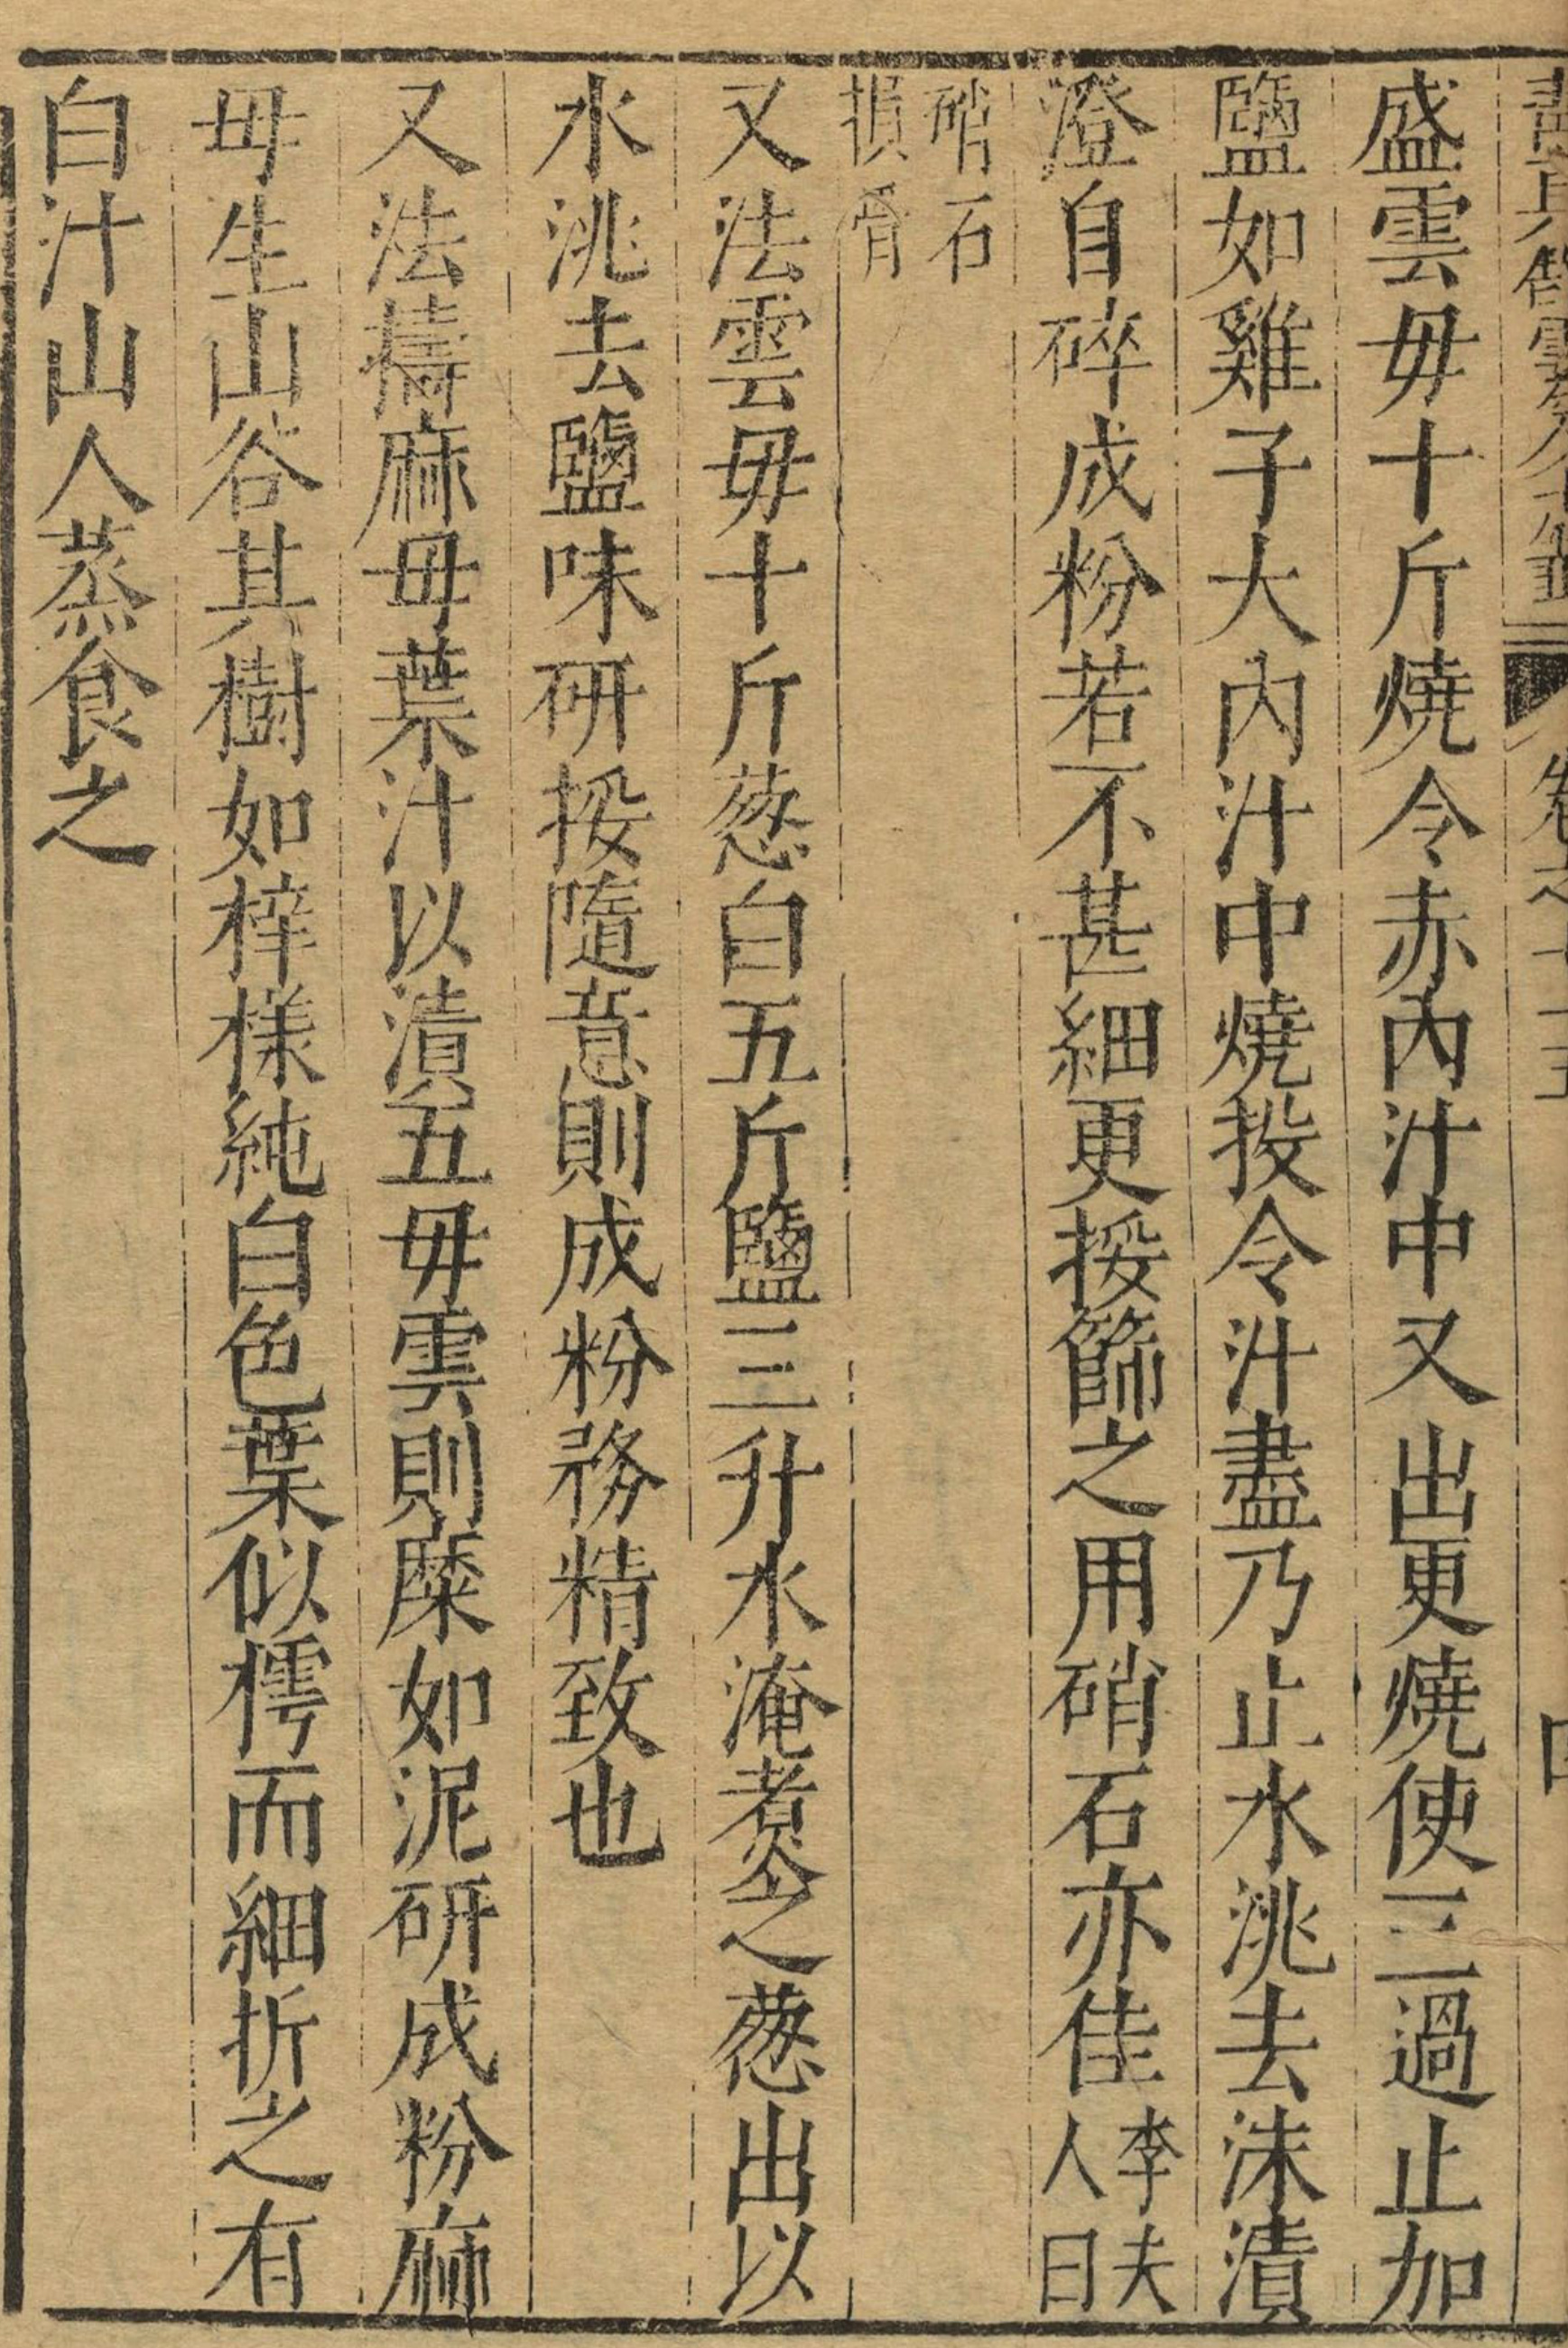 卷之七十五
盛雲毋十斤燒令赤內汁中又出更燒使三過止加
鹽如雞子大內汁中燒投令汁盡乃止水洮去沫漬
澄自碎成粉若不甚細更挼篩之用硝石亦佳李夫人曰
硝石損骨
又法雲毋十斤葱白五斤鹽三升水淹煑之葱出以
水洮去鹽味研挼隨意則成粉務精致也
又法擣麻毋葉汁以漬五毋雲則糜如泥研成粉麻
毋生山谷其樹如梓樣純白色葉似樗而細折之有
白汁山人蒸食之